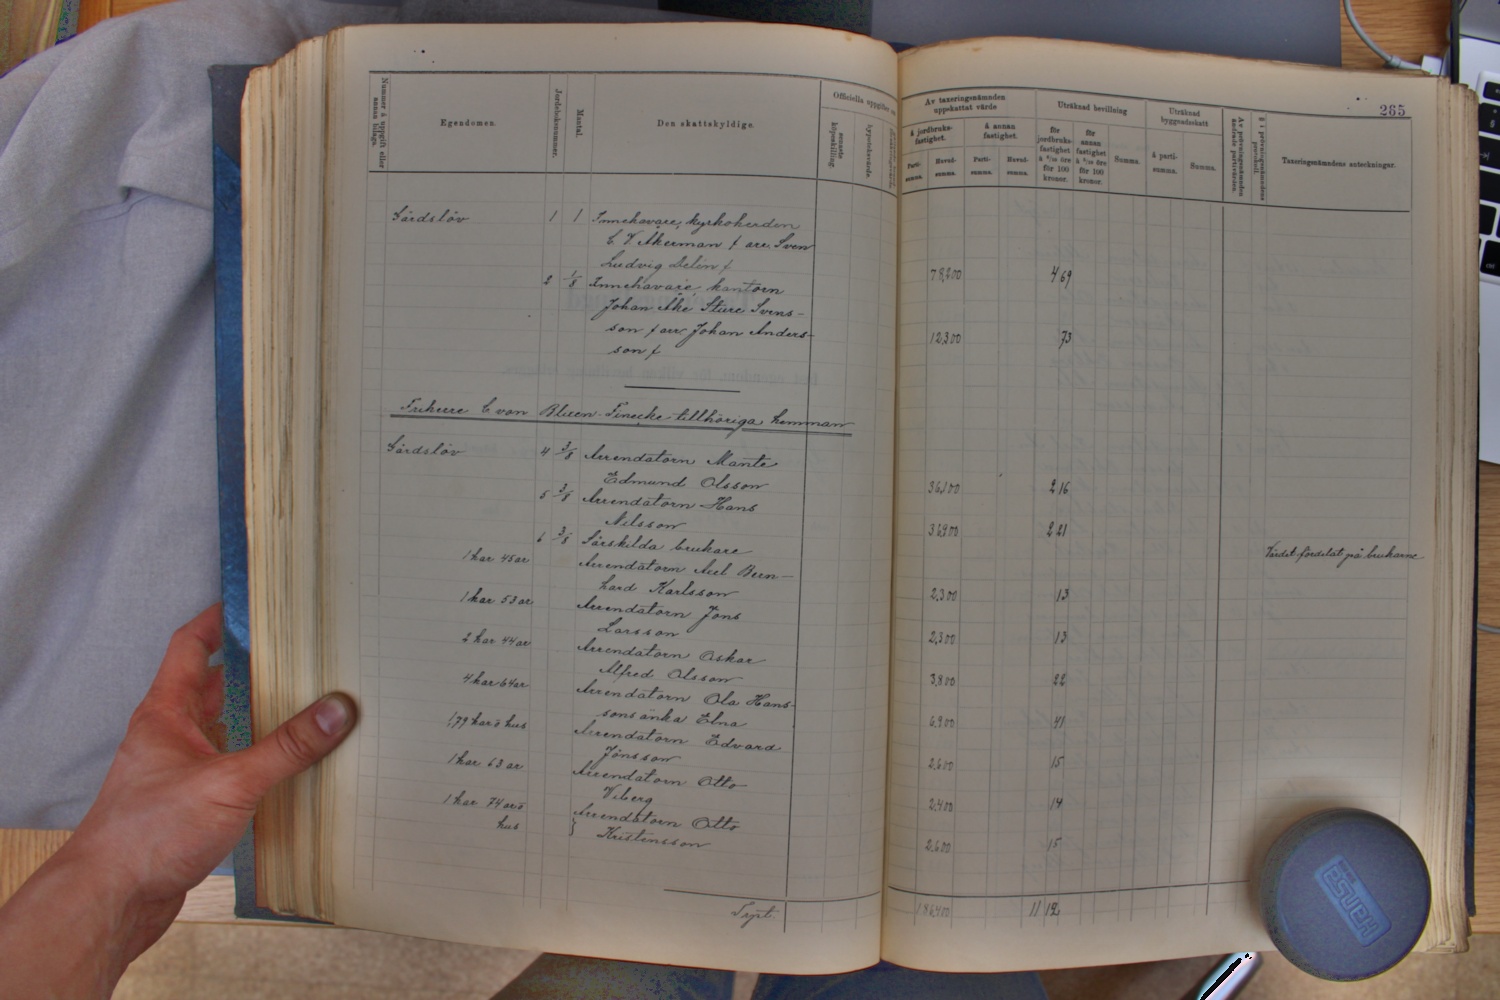 265
Nummer å uppgift eller annan bilaga.
Egendomen.
Jordeboksnummer.
Mantal.
Den skattskyldige.
Officiella uppgifter
senaste köpeskilling.
Av taxeringsnämnden uppskattat värde
å jordbruksfastighet.
å annan fastighet.
Partisumma.
Huvudsumma.
Partisumma.
Huvudsumma.
Uträknad bevillning
för jordbruksfastighet à 6/10 öre för 100 kronor.
för annan fastighet à 5/10 öre för 100 kronor.
Summa.
Uträknad byggnadsskatt
å partisumma.
Summa.
Av prövningsnämnden ändrade partivärden.
§ i prövningsnämndens protokoll.
Taxeringsnämndens anteckningar.
Särdslöv 1 1 Innehavare, kyrkoherden
C V Åkerman f arr. Sven
Ludvig Delin f 78,200 4 69
2 1/8 Innehavare kantorn
Johan Åke Sture Svens-
son f arr. Johan Anders- 12,300 73
son f
Friherre C von Blixen-Finecke tillhöriga hemman
Särdslöv 4 3/8 Arrendatorn Mante
Edmund Olsson 36,100 2 16
5 3/8 Arrendatorn Hans
Nilsson 36,900 2 21
6 3/8 Särskilda brukare Värdet fördelat på brukarne
1 har 45 ar Arrendatorn Axel Bern-
hard Karlsson 2,300 13
1 har 53 ar Arrendatorn Jöns
Larsson 2,300 13
2 har 44 ar Arrendatorn Oskar
Alfred Olsson 3,800 22
4 har 64 ar Arrendatorn Ola Hans-
sons änka Elna 6,900 41
1,79 har o hus Arrendatorn Edvard
Jönsson 2,600 15
1 har 63 ar Arrendatorn Otto
Viberg 2,400 14
1 har 74 ar o Arrendatorn Otto
hus Kristensson 2,600 15
Trpt. 186,400 11 12
HANSA